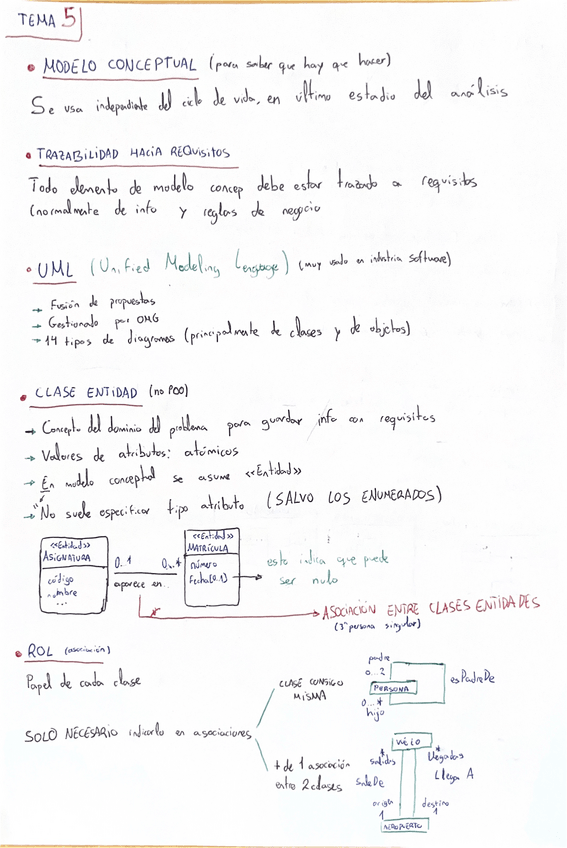 TEMA 5
• MODELO CONCEPTUAL (para saber que hay que hacer)
Se usa independiente del ciclo de vida, en último estadio del análisis
• TRAZABILIDAD HACIA REQUISITOS
Todo elemento de modelo concep debe estar trazado a requisitos
(normalmente de info y reglas de negocio
• UML (Unified Modeling Lenguage) (muy usado en industria software)
→ Fusión de propuestas
→ Gestionado por OMG
→ 14 tipos de diagramas (principalmente de clases y de objetos)
• CLASE ENTIDAD (no POO)
→ Concepto del dominio del problema para guardar info con requisitos
→ Valores de atributos: atómicos
→ En modelo conceptual se asume <<Entidad>>
→ "No suele especificar tipo atributo (SALVO LOS ENUMERADOS)
<<Entidad>>
ASIGNATURA
código
nombre
...
0..1 0..*
aparece en..
<<Entidad>>
MATRÍCULA
número
Fecha[0..1]
esto indica que puede
ser nulo
ASOCIACIÓN ENTRE CLASES ENTIDADES
(3ª persona singular)
• ROL (asociación)
Papel de cada clase
SOLO NECESARIO indicarlo en asociaciones
CLASE CONSIGO
MISMA
padre
0..2
PERSONA
0...*
hijo
esPadreDe
+ de 1 asociación
entre 2 clases
VUELO
* *
salidas llegadas
SaleDe Llega A
origen destino
1 1
AEROPUERTO